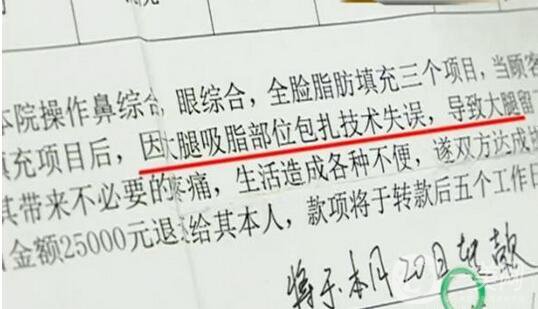 本院操作鼻综合，眼综合，全脸脂肪填充三个项目，当顾客
填充项目后，因大腿吸脂部位包扎技术失误，导致大腿留
其带来不必要的疼痛，生活造成各种不便，遂双方达成
金额25000元退 给其本人，款项将于转款后五个工作日
将于本月20日 款